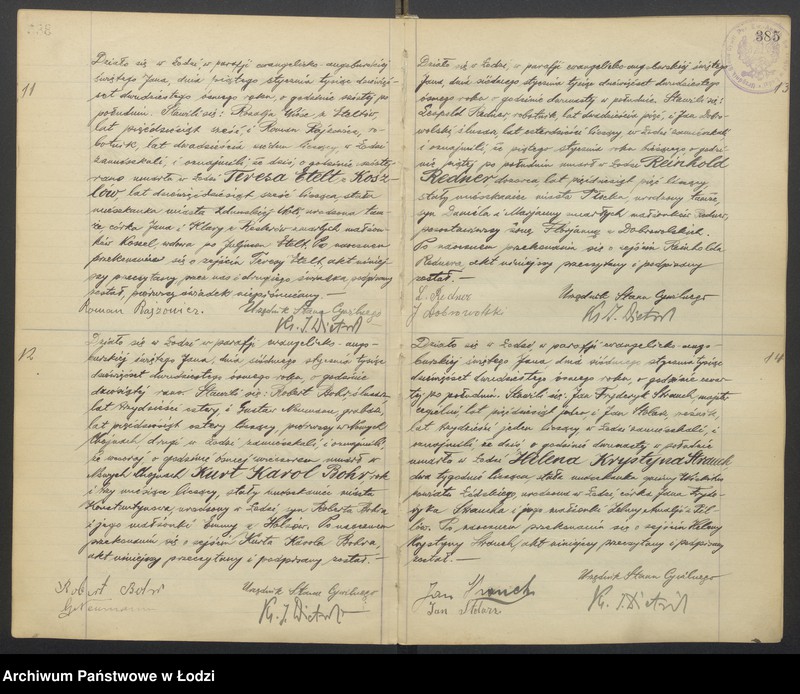 385
11
Działo się w Łodzi, w parafji ewangelicko-augsburskiej
świętego Jana, dnia piątego stycznia tysiąc dziewięć-
set dwudziestego ósmego roku, o godzinie szóstej po
południu. Stawili się:
lat pięćdziesiąt sześć, i Roman Rajzowicz, ro-
botnik, lat dwadzieścia siedem liczący, w Łodzi
zamieszkali, i oznajmili, że dziś, o godzinie szóstej
rano umarła w Łodzi Teresa Etelt z Kosz-
lów, lat dziewięćdziesiąt sześć licząca, stała
mieszkanka miasta Zduńskiej Woli, urodzona tam-
że córka Jana i Klary z zmarłych małżon-
ków Kossel, wdowa po Juljuszu Etelt. Po naocznem
przekonaniu się o zejściu Teresy Etelt, akt niniej-
szy przeczytany, przez nas i drugiego świadka podpisany
został, pierwszy świadek niepiśmienny. —
Roman Rajzowicz. Urzędnik Stanu Cywilnego
Ks. J. Dietrich
12
Działo się w Łodzi w parafji ewangelicko-augs-
burskiej świętego Jana, dnia siódmego stycznia tysiąc
dziewięćset dwudziestego ósmego roku, o godzinie
dziewiątej rano. Stawili się: Robert Bohr, ślusarz,
lat trzydzieści cztery, i Gustaw Neumann, grabarz,
lat pięćdziesiąt cztery liczący, pierwszy w Nowych
Chojnach drugi w Łodzi zamieszkali, i oznajmili,
że wczoraj, o godzinie ósmej wieczorem umarł w
Nowych Chojnach Kurt Karol Bohr, rok
i trzy miesiące liczący, stały mieszkaniec miasta
Konstantynowa, urodzony w Łodzi, syn Roberta Bohra
i jego małżonki Emmy z Po naocznem
przekonaniu się o zejściu Kurta Karola Bohra,
akt niniejszy przeczytany i podpisany został. —
Robert Bohr Urzędnik Stanu Cywilnego
G. Neumann Ks. J. Dietrich
13
Działo się w Łodzi, w parafji ewangelicko-augsburskiej świętego
Jana, dnia siódmego stycznia tysiąc dziewięćset dwudziestego
ósmego roku o godzinie dwunastej w południe. Stawili się:
Leopold Redner, robotnik, lat dwadzieścia pięć, i Jan Dobro-
wolski, ślusarz, lat czterdzieści liczący, w Łodzi zamieszkali
i oznajmili, że piątego stycznia roku bieżącego o godzi-
nie piątej po południu umarł w Łodzi Reinhold
Redner, dozorca, lat pięćdziesiąt pięć liczący,
stały mieszkaniec miasta Płocka, urodzony tamże,
syn Daniela i Marjanny zmarłych małżonków Redner,
pozostawiwszy żonę Florjannę z Dobrowolskich.
Po naocznem przekonaniu się o zejściu Reinholda
Rednera, akt niniejszy przeczytany i podpisany
został. —
L. Redner Urzędnik Stanu Cywilnego
J. Dobrowolski Ks. J. Dietrich
14
Działo się w Łodzi w parafji ewangelicko-augs-
burskiej świętego Jana, dnia siódmego stycznia tysiąc
dziewięćset dwudziestego ósmego roku, o godzinie czwar-
tej po południu. Stawili się: Jan Fryderyk Strauch, majster
lat pięćdziesiąt jeden i Jan Stolarz,
lat trzydzieści jeden liczący w Łodzi zamieszkali, i
oznajmili, że dziś, o godzinie dwunastej w południe
umarła w Łodzi Helena Krystyna Strauch
dwa tygodnie licząca, stała mieszkanka gminy
powiatu Łódzkiego, urodzona w Łodzi, córka Jana Fryde-
ryka Straucha i jego małżonki
Po naocznem przekonaniu się o zejściu Heleny
Krystyny Strauch, akt niniejszy przeczytany i podpisany
został. —
Jan Strauch Urzędnik Stanu Cywilnego
Jan Stolarz Ks. J. Dietrich
Archiwum Państwowe w Łodzi